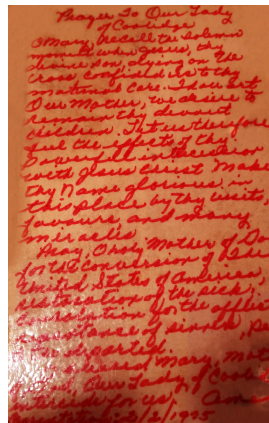 Prayer To Our Lady
of Cambridge
O Mary, recall the solemn
moment when Jesus, thy
divine son, dying on the
cross confided us to thy
maternal care. Thou art
Our Mother, we desire to
remain thy devout
children. Let us therefore
feel the effects of thy
powerful intercession
with Jesus Christ. Make
thy Name glorious in
this place by thy visits,
favours and many
miracles.
Pray, O holy Mother of God
for the conversion of the
United States of America,
restoration of the sick,
consolation for the afflic
repentance of sinners, pe
departed.
blessed Mary, Mot
Our Lady of
intercede for us. Amen
2/2/1995